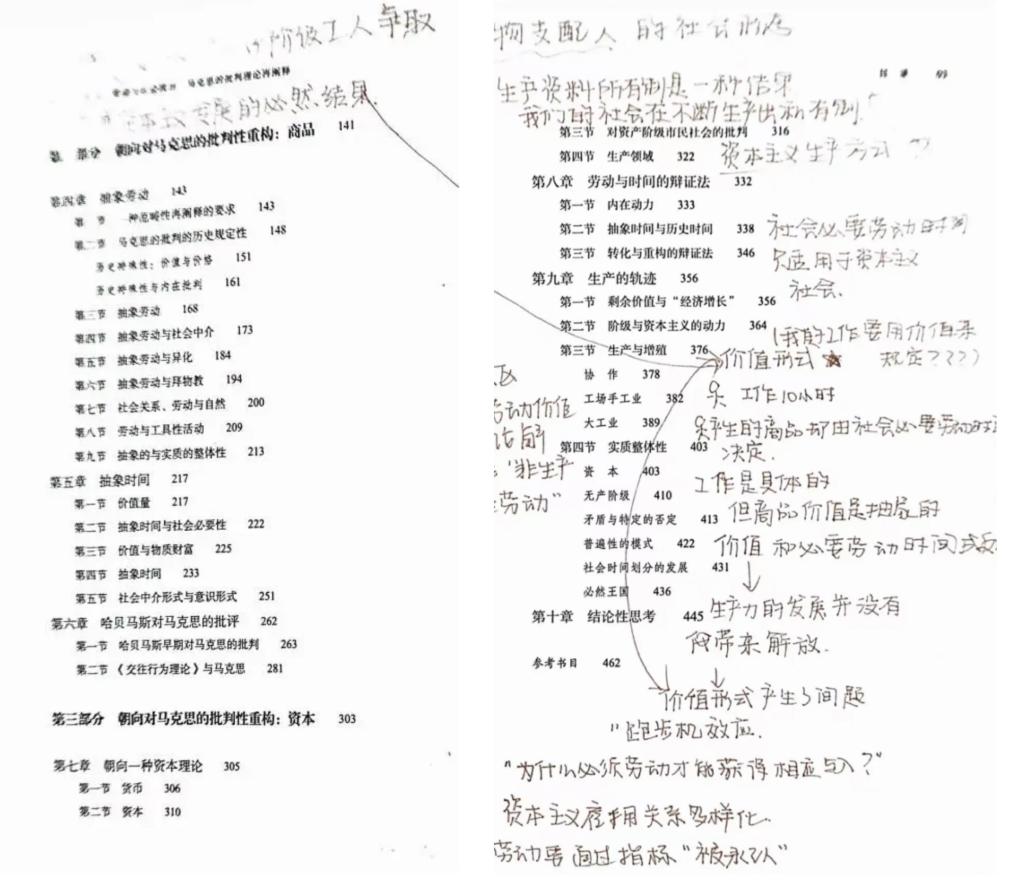 阶级工人争取
马克思的批判理论再阐释
发展的必然结果
部分 朝向对马克思的批判性重构：商品 141
第四章 抽象劳动 143
第 节 一种范畴性再阐释的要求 143
第二节 马克思的批判的历史规定性 148
历史特殊性：价值与价格 151
历史特殊性与内在批判 161
第三节 抽象劳动 168
第四节 抽象劳动与社会中介 173
第五节 抽象劳动与异化 184
第六节 抽象劳动与拜物教 194
第七节 社会关系、劳动与自然 200
第八节 劳动与工具性活动 209
第九节 抽象的与实质的整体性 213
第五章 抽象时间 217
第一节 价值量 217
第二节 抽象时间与社会必要性 222
第三节 价值与物质财富 225
第四节 抽象时间 233
第五节 社会中介形式与意识形式 251
第六章 哈贝马斯对马克思的批评 262
第一节 哈贝马斯早期对马克思的批判 263
第二节 《交往行为理论》与马克思 281
第三部分 朝向对马克思的批判性重构：资本 303
第七章 朝向一种资本理论 305
第一节 货币 306
第二节 资本 310
物支配人的社会形态
生产资料所有制是一种结果
我们的社会在不断生产出私有制！
第三节 对资产阶级市民社会的批判 316
第四节 生产领域 322
资本主义生产方式？？
第八章 劳动与时间的辩证法 332
第一节 内在动力 333
第二节 抽象时间与历史时间 338
第三节 转化与重构的辩证法 346
社会必要劳动时间
只适用于资本主义
社会.
第九章 生产的轨迹 356
第一节 剩余价值与“经济增长” 356
第二节 阶级与资本主义的动力 364
第三节 生产与增殖 376
(我的工作要用价值来
规定？？？)
价值形式 ★
协 作 378
工场手工业 382
大工业 389
工作10小时
产生的商品却由社会必要劳动时
决定.
劳动价值
“非生产
劳动”
第四节 实质整体性 403
资 本 403
无产阶级 410
矛盾与特定的否定 413
普遍性的模式 422
社会时间划分的发展 431
必然王国 436
工作是具体的
但商品价值是抽象的
价值和必要劳动时间成反
第十章 结论性思考 445
生产力的发展并没有
带来解放.
参考书目 462
价值形式产生了问题
“跑步机效应.
“为什么必须劳动才能获得相应收入？”
资本主义雇佣关系多样化.
劳动要通过指标“被承认”